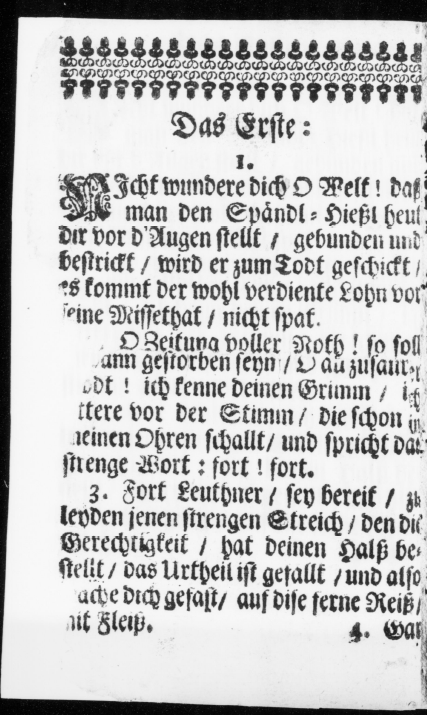 Das Erste:
1.
NIcht wundere dich O Welt! daß
man den Spändl-Hießl heut
dir vor d'Augen stellt / gebunden und
bestrickt / wird er zum Todt geschickt /
es kommt der wohl verdiente Lohn vor
seine Missethat / nicht spat.
O Zeitung voller Noth! so soll
dann gestorben seyn / O
ich kenne deinen Grimm / ich
vor der Stimm / die schon in
meinen Ohren schallt / und spricht das
strenge Wort: fort! fort.
3. Fort Leuthner / sey bereit / zu
leyden jenen strengen Streich / den die
Gerechtigkeit / hat deinen Halß be-
stellt / das Urtheil ist gefallt / und also
mache dich gefast / auf dise ferne Reiß /
mit Fleiß.
4. War